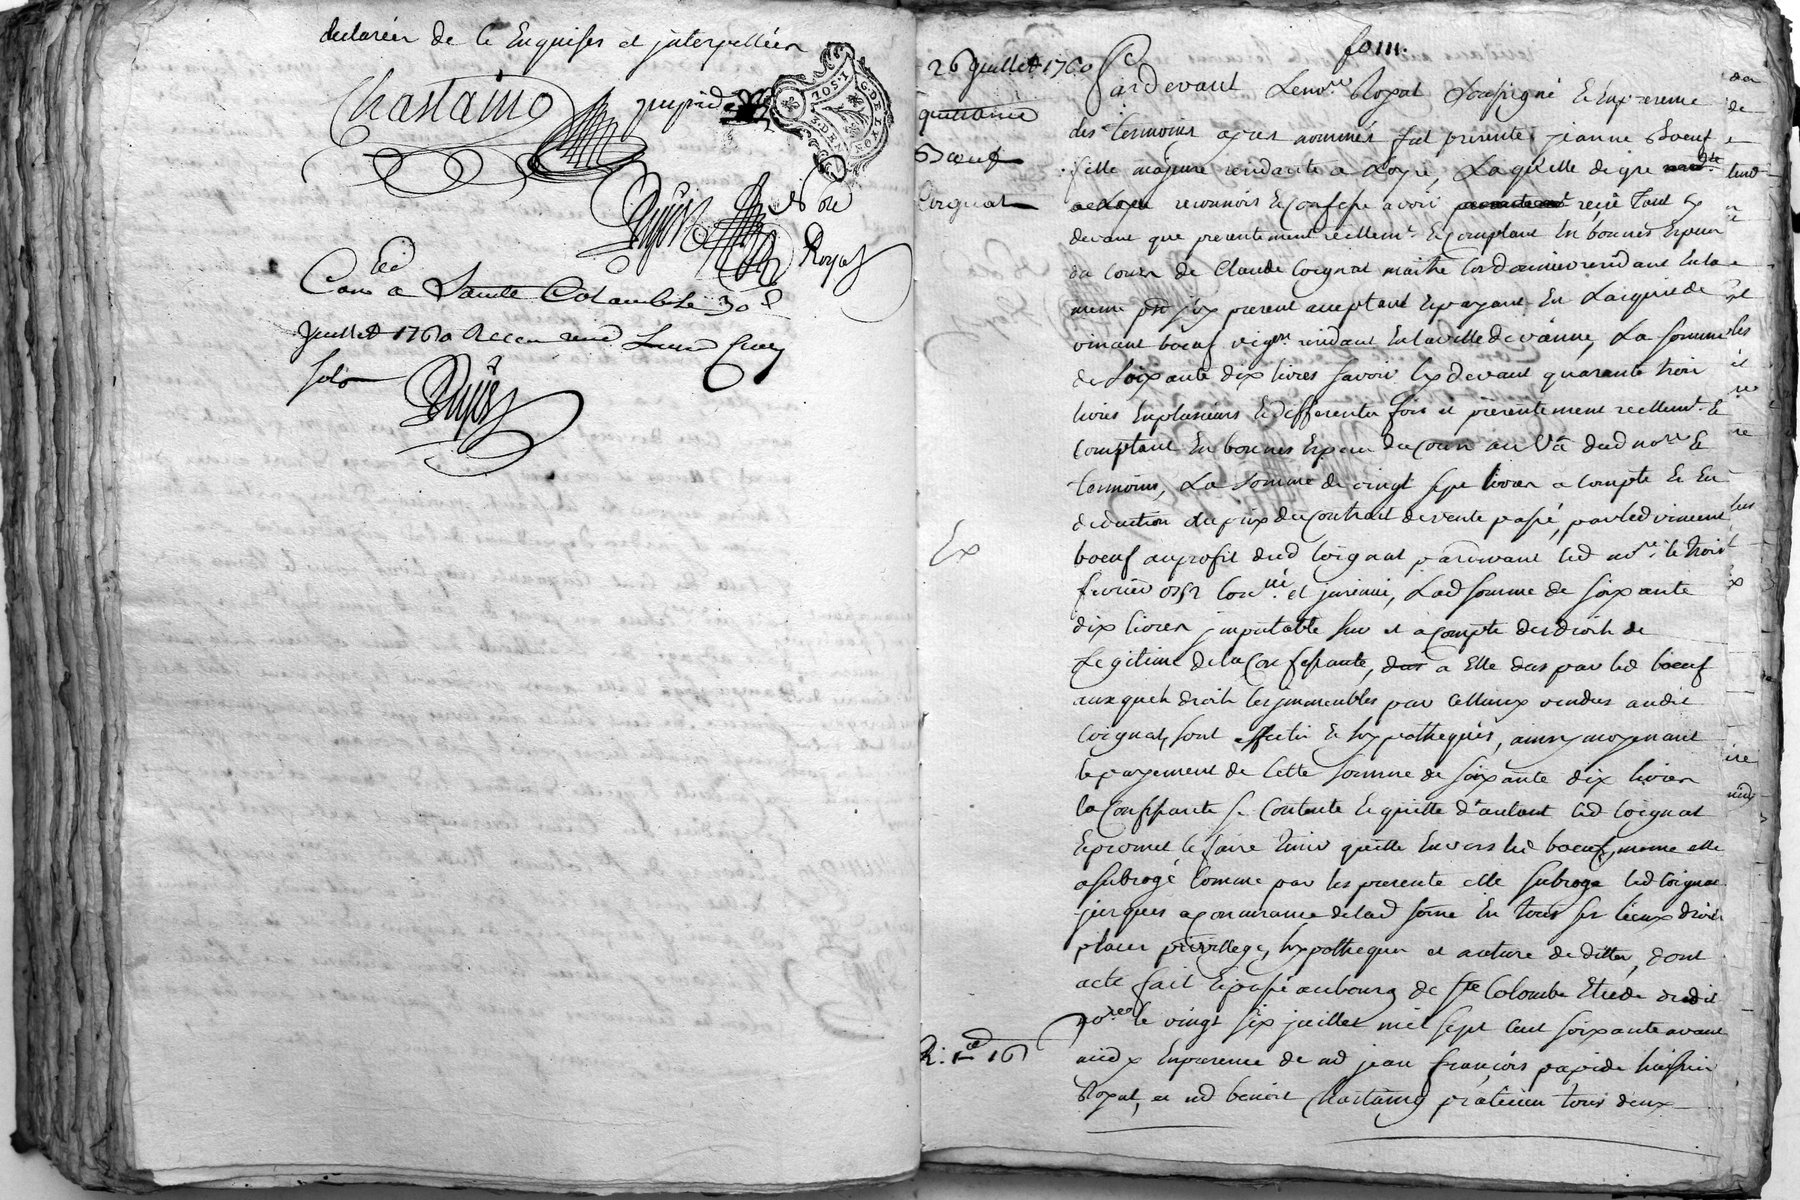 declarées de ce Enquises et jnterpellées
Chastaing
papide
Dupuis
No.re
Royal
C.lé
Con.lé a Sainte Colombe le 30.e
juillet 1760 Receu
sols
Dupuis
fo 111.
26 juillet 1760
quittance
Boeuf
Coignat
Pardevant Le no.re Royal Soussigné Et En presence
des temoins apres nommés fut presente jeanne Boeuf
fille majeure residante a Loyre, Laquelle de gre
reconnois Et confesse avoir receu tant cy
devant que presentement réellem.t Et comptant En bonnes Especes
du cours de Claude Coignat maitre Cordonnier residant En la
meme p.sse jcy present acceptant Et payant En L'acquit de
vincent boeuf vigon residant En la ville de vienne, La somme
de soixante dix livres savoir cy devant quarante trois
livres En plusieurs Et differentes fois et presentement réellem.t Et
comptant En bonnes Especes du cours au Vû dud no.re Et
temoins, La somme de vingt sept livres a compte Et En
deduction du prix du Contrait de vente passé, par led vincent
boeuf au profit dud Coignat pardevant led no.re le trois
Ex
fevrier 1752 con.lé et jnsinué, Lad somme de soixante
dix livres jmputable sur et a compte des droits de
Legitime de la Confessante, a Elle dus par led boeuf
auxquels droits les jmmeubles par celluy vendus audit
Coignat, sont affectés Et hypothequés, ainsy moyenant
le payement de Cette somme de soixante dix livres
la Confessante se Contente Et quitte d'autant led Coignat
Et promet le faire tenir quitte Envers led boeuf, meme elle
a subrogé Comme par les presente elle subroge led Coignat
jusques a concurrance de lad some En tous ses lieux droits
places privillege, hypotheques et auture de dittes, dont
acte fait Et passé au bourg de S.te Colombe Etude dudit
no.re le vingt six juillet mil sept cent soixante avant
R: 1.ce 16
midy En presence de md jean françois papide huissier
Royal, et md benoit Chastaing praticien tous deux